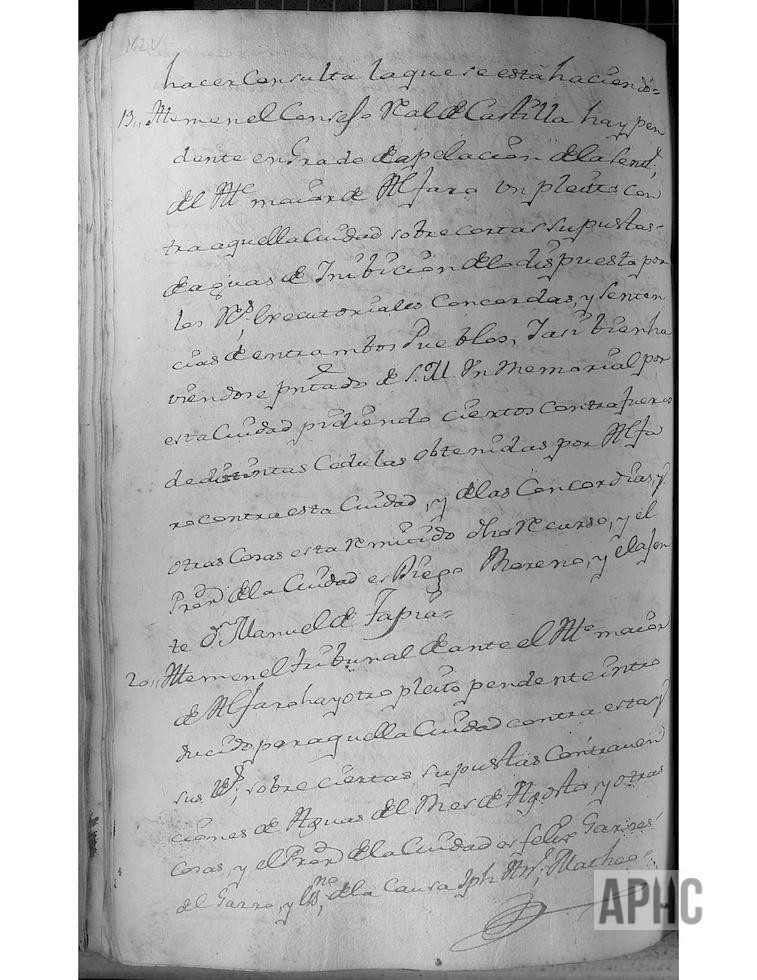 162 V
hacer Consulta la que se está haciendo=
19,, Ittem en el Consejo Rl. de Castilla hay pen
dente en Grado de apelacion de la Sent.ª
del Alc.e maior de Alfaro un pleito con
tra aquella Ciudad sobre cortas supuestas
de aguas de Inibicion de lo dispuesto por
las Rs. Executoriales Concordas, y Senten
cias de entrambos Pueblos, y asi bien ha
viendose pntado de S.M. Un Memorial por
esta Ciudad pidiendo ciertos Contrafueros
de distintas Cedulas obtenidas por Alfa
ro contra esta Ciudad, y de las Concordias, y
otras Cosas esta remitido dho Recurso, y el
Pror de la Ciudad es Diego Moreno, y el ajen
te Dn Manuel de Tapia=
20,, Ittem en el tribunal de ante el Alc.e maior
de Alfaro hay otro pleito pendente intro
ducido por aquella Ciudad contra esta y
sus sobre ciertas supuestas Contraven
ciones de Aguas del Mes de Agosto, y otras
Cosas, y el Pror de la Ciudad es felix Garces
del Garro, y Essno de la Causa Jph Matheo=
APHC